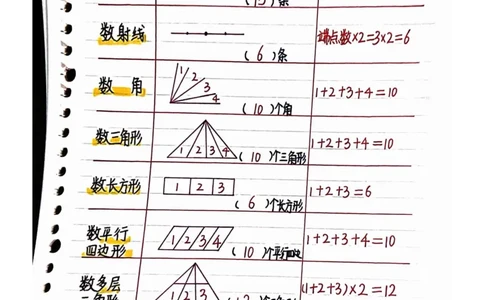 (15)条
数射线
(6)条
端点数×2=3×2=6
数 角
1
2
3
4
(10)个角
1+2+3+4=10
数三角形
1 2 3 4
(10)个三角形
1+2+3+4=10
数长方形
1 2 3
(6)个长方形
1+2+3=6
数平行
四边形
1 2 3 4
(10)个平行四边
1+2+3+4=10
数多层
三角形
2 3
(1+2+3)×2=12